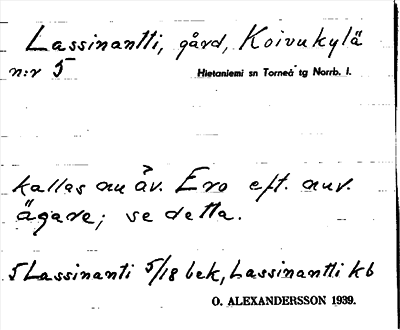 Lassinantti, gård, Koivukylä
n:r 5 Hietaniemi sn Torneå tg Norrb. l.
kallas nu äv. Ero eft. nuv.
ägare; se detta.
5 Lassinanti 5/18 bek, Lassinantti kb
O. ALEXANDERSSON 1939.